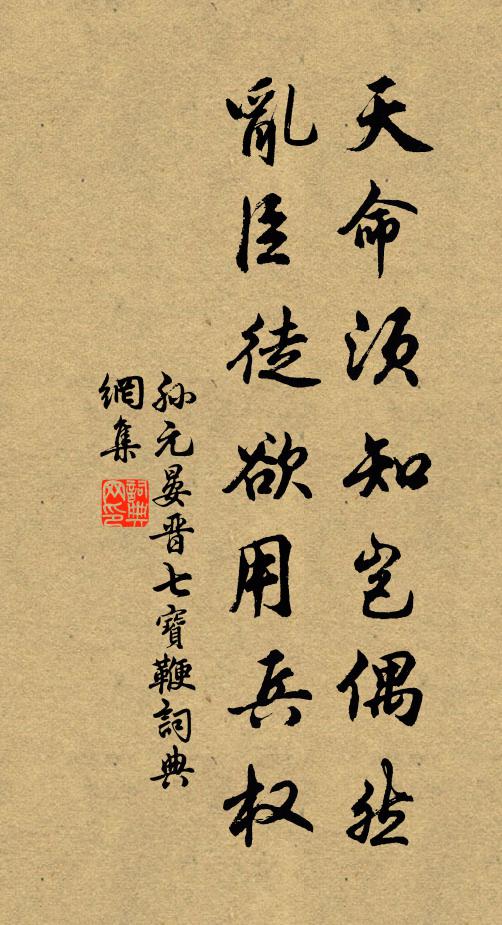 天命须知岂偶然
亂臣徒欲用兵权
孙元晏晋七寶鞭詞典
網集
詞典
网印